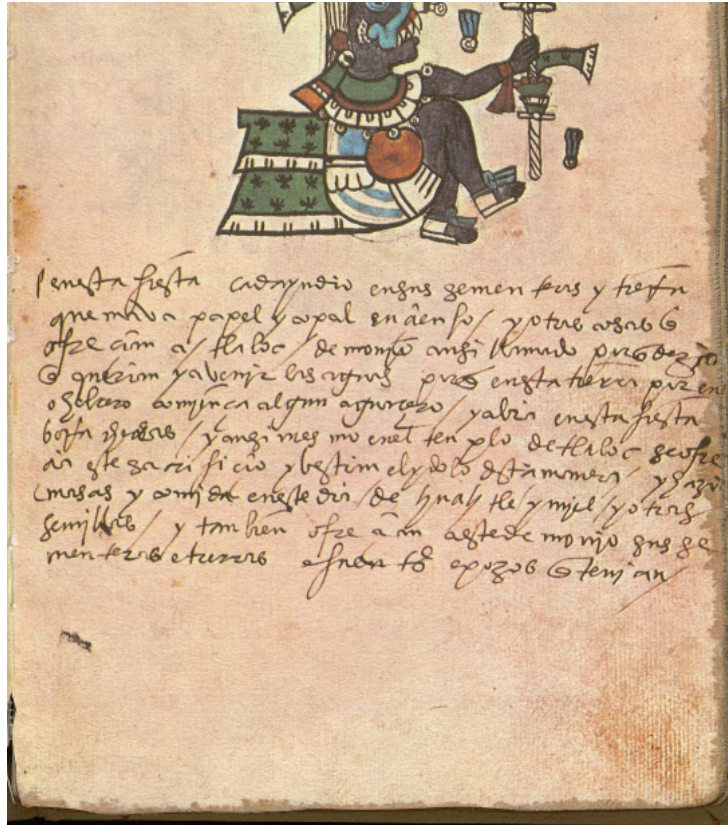 enesta fiesta cada yndio en sus sementeras y
quemava papel y copal en yotras cosas q
a tlaloc demonio ansi llamado
q querian ya venir las aguas en esta tierra por en
o hebrero comiença algun aguacero / y abia en esta fiesta
/ y ansi mesmo en el templo de tlaloc se ofre
este sacrificio y bestian el ydolo desta manera / y hazi
masas y comida en este dia / de huatle y miel / y otras
semillas / y tambien ofrecian a este demonio sus se
menteras e tierras e pozos q tenian /